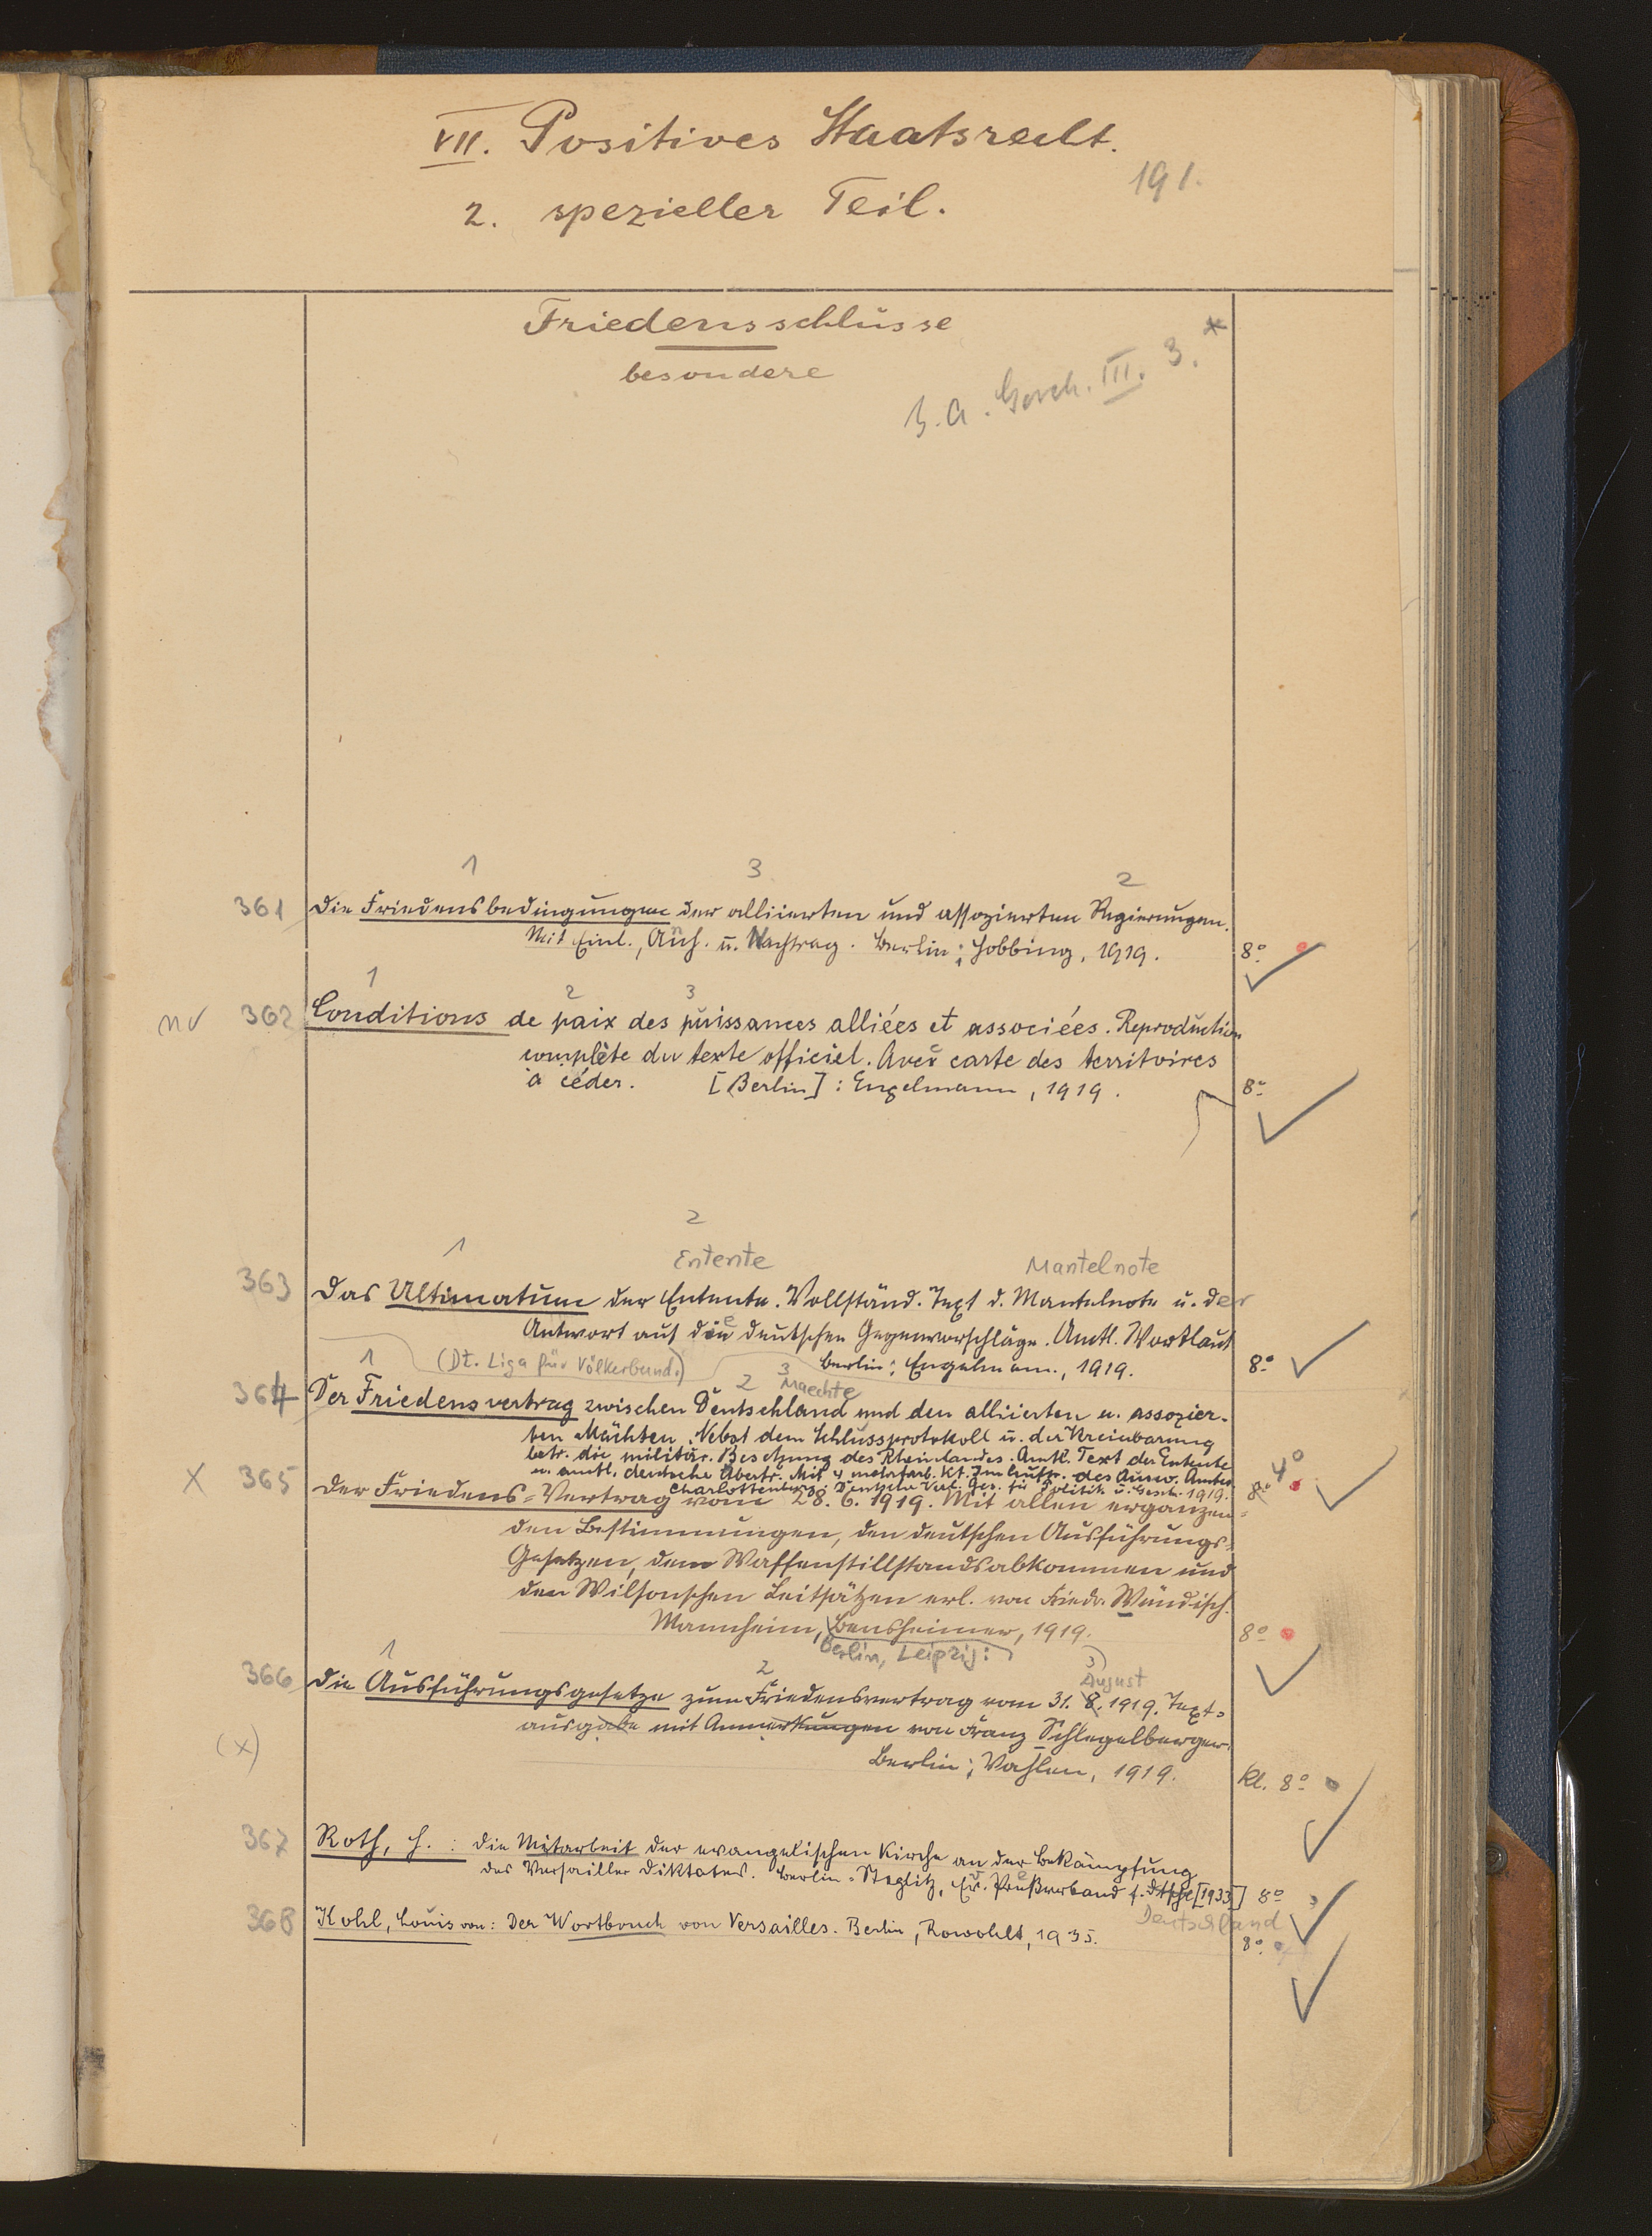 VII. Positives Staatsrecht.
191.
2. spezieller Teil.
Friedensschlüsse
besondere
s. a. Gesch. III. 3. *
1 3 2
361 Die Friedensbedingungen der alliierten und assoziierten Regierungen.
Mit Einl., Anh. u. Nachtrag. Berlin: Hobbing, 1919. 8°
1 2 3
nv 362 Conditions de paix des puissances alliées et associées. Reproduction
complète du texte officiel. Avec carte des territoires
à céder. [Berlin]: Engelmann, 1919. 8°
2
1 Entente Mantelnote
363 Das Ultimatum der Entente. Vollständ. Text d. Mantelnote u. der
Antwort auf die deutschen Gegenvorschläge. Amtl. Wortlaut
(Dt. Liga für Völkerbund.) Berlin: Engelmann, 1919. 8°
1 2 3 Maechte
364 Der Friedensvertrag zwischen Deutschland und den alliierten u. assoziier-
ten Mächten. Nebst dem Schlussprotokoll u. der Vereinbarung
betr. die militär. Besetzung des Rheinlandes. Amtl. Text der Entente
u. amtl. deutsche Übertr. Mit 4 mehrfarb. Kt. Im Auftr. des Ausw. Amtes
Charlottenburg: Deutsche Verl. Ges. für Politik u. Gesch. 1919. 4°
X 365 Der Friedens-Vertrag vom 28. 6. 1919. Mit allen ergänzen-
den Bestimmungen, den deutschen Ausführungs-
Gesetzen, dem Waffenstillstandsabkommen und
den Wilsonschen Leitsätzen erl. von Friedr. Wündisch.
Mannheim, Bensheimer, 1919. 8°
Berlin, Leipzig:
1 2 3 August
366 Die Ausführungsgesetze zum Friedensvertrag vom 31. 8. 1919. Text-
ausgabe mit Anmerkungen von Franz Schlegelberger.
(x) Berlin: Vahlen, 1919. Kl. 8°
367 Roth, H.: Die Mitarbeit der evangelischen Kirche an der Bekämpfung
des Versailler Diktates. Berlin-Steglitz, Ev. Preßverband f. Dtsche [1933] 8°
Deutschland
368 Kohl, Louis von: Der Wortbruch von Versailles. Berlin, Rowohlt, 1935. 8°